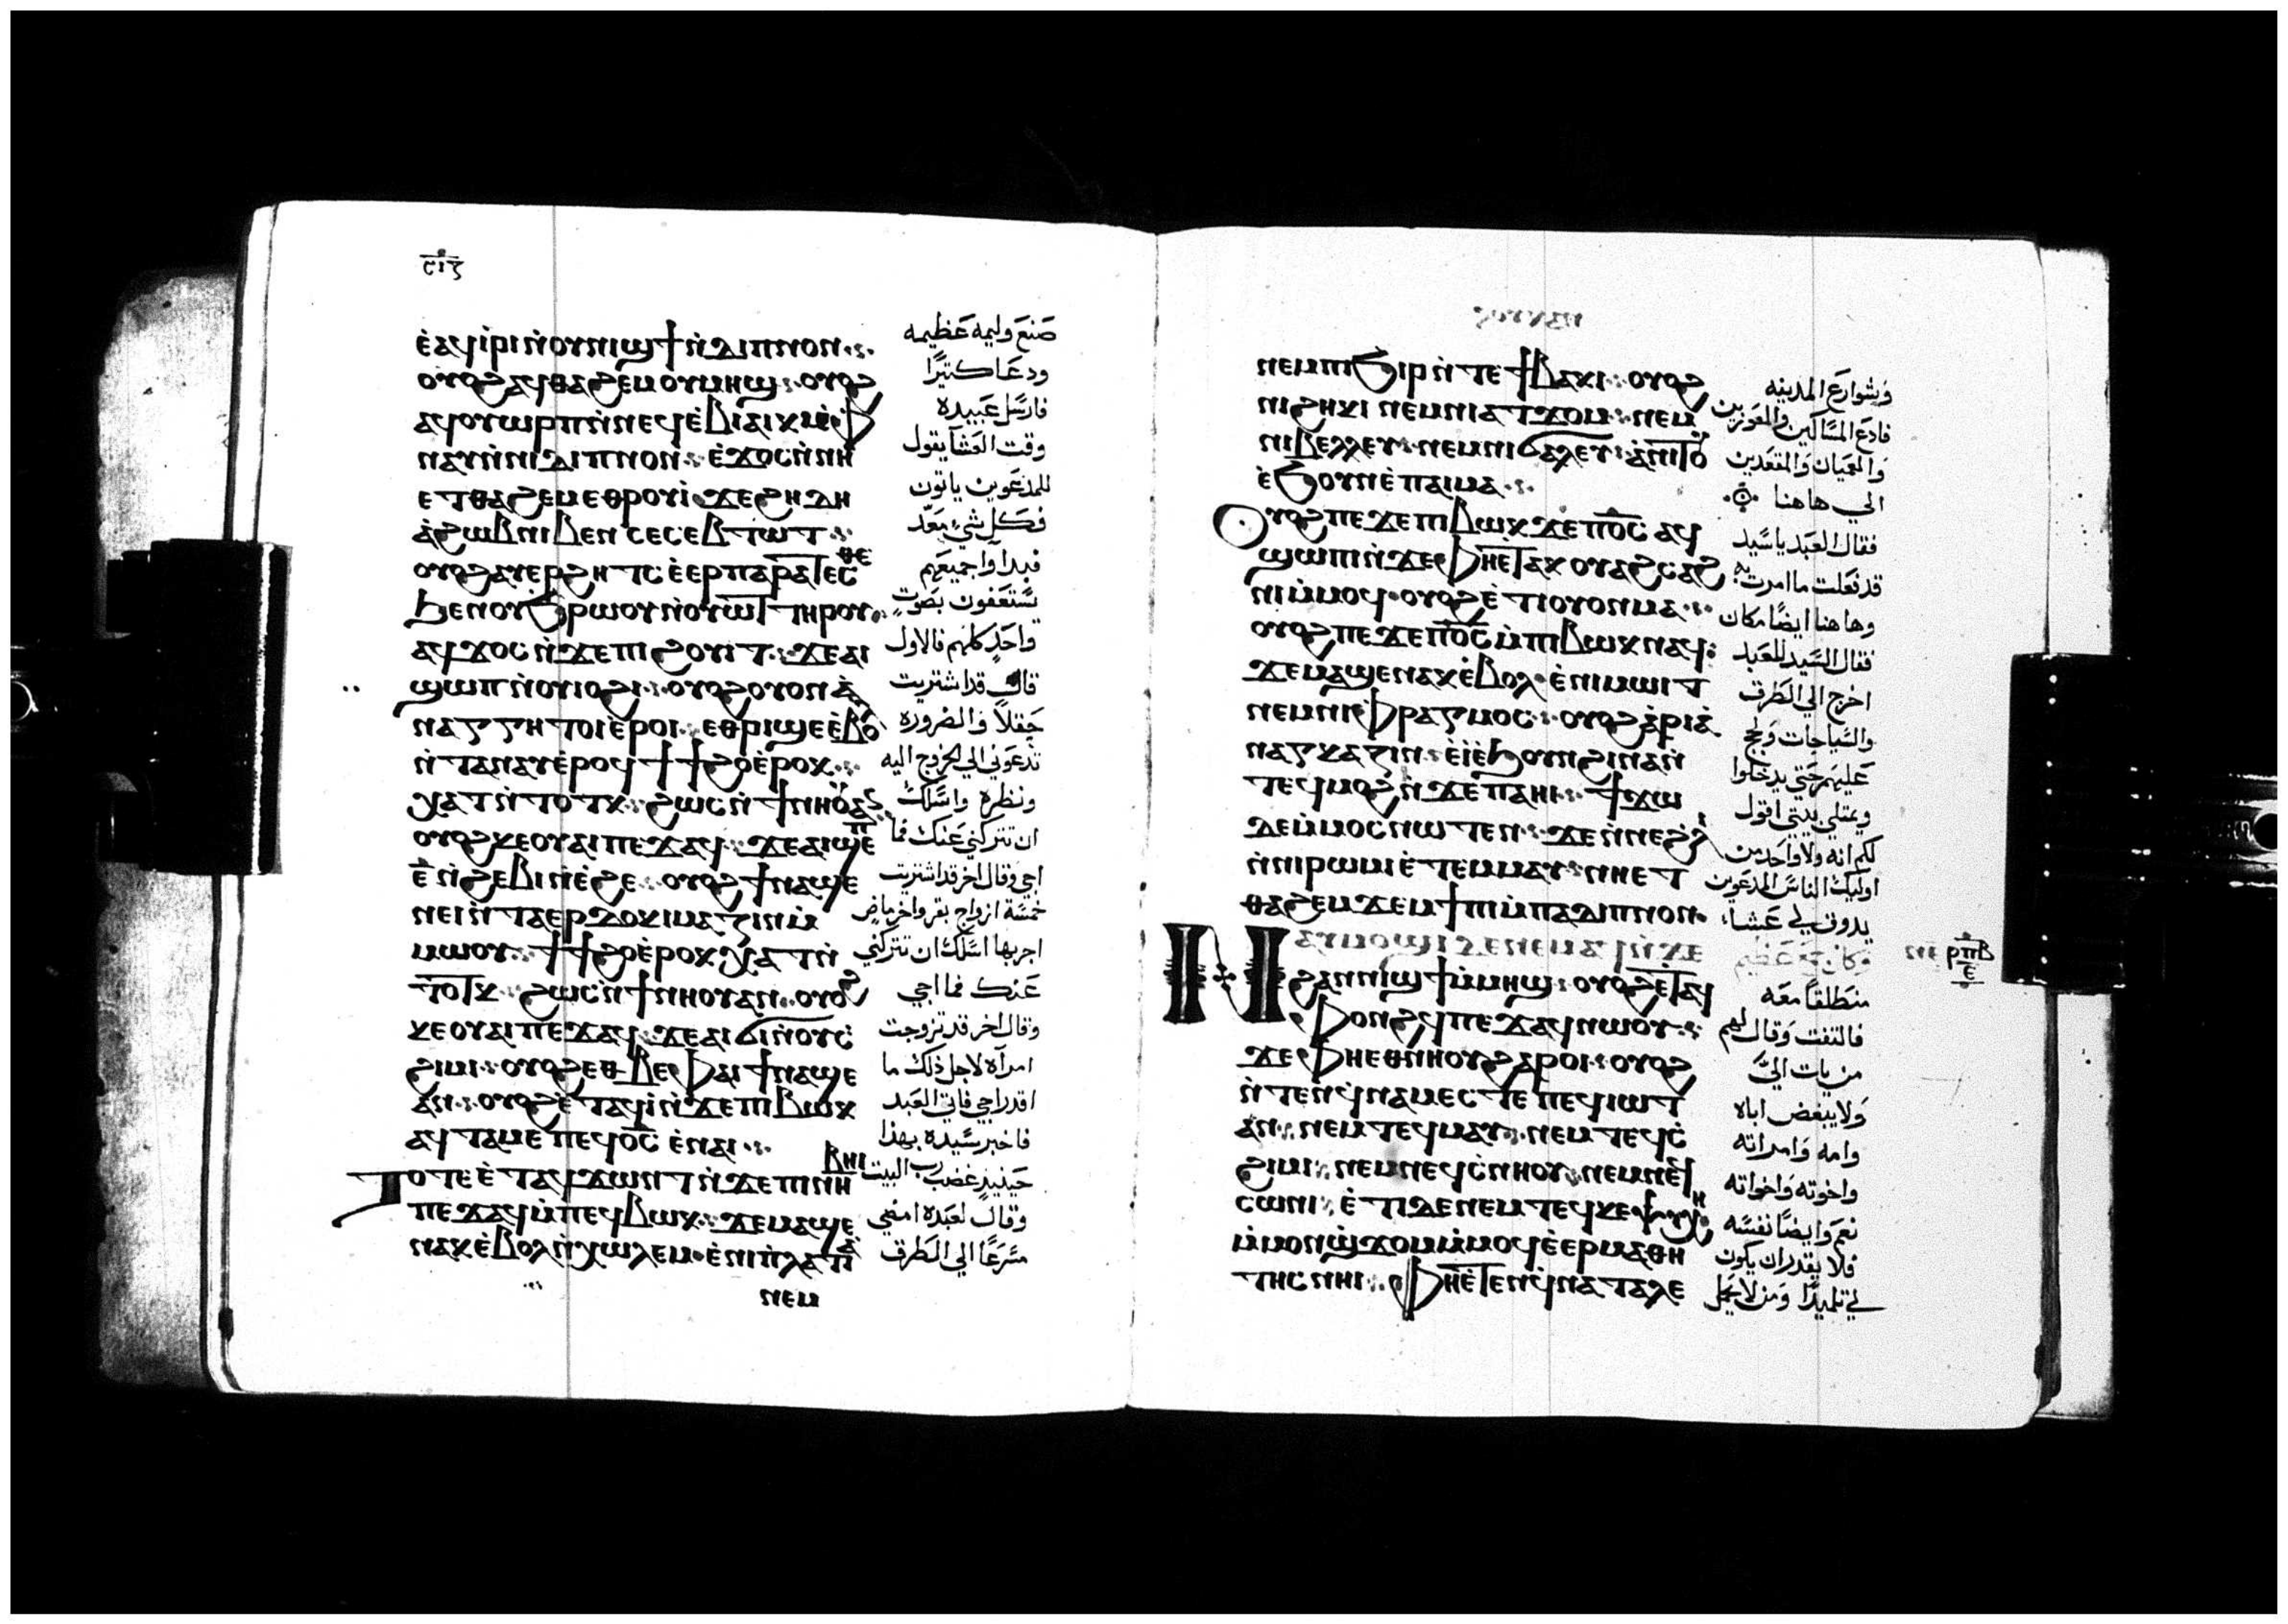 ⲥ̅ⲓ̅ⲍ̅
ⲉ̀ⲁϥⲓ̀ⲣⲓ ⲛ̀ⲟⲩⲛⲓϣϯ ⲛ̀ⲇⲓⲡⲛⲟⲛ
ⲟⲩⲟϩ ⲁϥⲑⲁϩⲉⲙ ⲟⲩⲙⲏϣ ⲟⲩⲟϩ
ⲁϥⲟⲩⲱⲣⲡ ⲙ̀ⲡⲉϥⲉ̀ⲃⲓⲁⲓⲕ
ⲛⲁⲩ ⲙ̀ⲡⲓⲇⲓⲡⲛⲟⲛ ⲉ̀ϫⲟⲥ ⲛ̀ⲛⲏ
ⲉⲧⲑⲁϩⲉⲙ ⲉⲑⲣⲟⲩⲓ̀ ϫⲉ ϩⲏⲇⲏ
ⲁ̀ϩⲱⲃ ⲛⲓⲃⲉⲛ ⲥⲉⲥⲉⲃⲧⲱⲧ
ⲟⲩⲟϩ ⲁⲩⲉⲣϩⲏⲧⲥ ⲉ̀ⲉⲣⲡⲁⲣⲁⲓⲧⲉⲥⲑⲉ
ϧⲉⲛ ⲟⲩϧⲣⲱⲟⲩ ⲛ̀ⲟⲩⲱⲧ ⲧⲏⲣⲟⲩ
ⲁϥϫⲟⲥ ⲛ̀ϫⲉ ⲡⲓϩⲟⲩⲓⲧ ϫⲉ ⲁⲓ
ϣⲱⲡ ⲛ̀ⲟⲩⲓⲟϩⲓ ⲟⲩⲟϩ ⲟⲩⲟⲛ ⲁ̀
ⲛⲁⲅⲅⲏ ⲧⲟⲓ ⲉ̀ⲣⲟⲓ ⲉⲑⲣⲓϣⲉ ⲉ̀ⲃⲟⲗ
ⲛ̀ⲧⲁⲛⲁⲩ ⲉ̀ⲣⲟϥ ϯϯϩⲟ ⲉ̀ⲣⲟⲕ
ⲭⲁⲧ ⲛ̀ⲧⲟⲧⲕ ϩⲱⲥ ⲛ̀ϯⲛⲏⲟⲩ ⲁⲛ
ⲟⲩⲟϩ ⲕⲉⲟⲩⲁⲓ ⲡⲉϫⲁϥ ϫⲉ ⲁⲓϣⲉⲡ
ⲉ̅ ⲛ̀ϩⲉⲃⲓ ⲛ̀ⲉ̀ϩⲉ ⲟⲩⲟϩ ϯⲛⲁϣⲉ
ⲛⲏⲓ ⲛ̀ⲧⲁⲉⲣⲇⲟⲕⲓⲙⲁⲍⲓⲛ ⲙ̀
ⲙⲱⲟⲩ ϯϯϩⲟ ⲉ̀ⲣⲟⲕ ⲭⲁⲧ ⲛ̀
ⲧⲟⲧⲕ ϩⲱⲥ ⲛ̀ϯⲛⲏⲟⲩ ⲁⲛ ⲟⲩⲟϩ
ⲕⲉⲟⲩⲁⲓ ⲡⲉϫⲁϥ ϫⲉ ⲁⲓϭⲓ ⲛ̀ⲟⲩⲥ̀
ϩⲓⲙⲓ ⲟⲩⲟϩ ⲉⲑⲃⲉ ⲫⲁⲓ ϯⲛⲁϣⲉ
ⲁⲛ ⲟⲩⲟϩ ⲉ̀ⲧⲁϥⲓ̀ ⲛ̀ϫⲉ ⲡⲓⲃⲱⲕ
ⲁϥⲧⲁⲙⲉ ⲡⲉϥⲟ̅ⲥ̅ ⲉ̀ⲛⲁⲓ
ⲧⲟⲧⲉ ⲉ̀ⲧⲁϥϫⲱⲛⲧ ⲛ̀ϫⲉ ⲡⲓⲛⲏⲃⲏⲓ
ⲡⲉϫⲁϥ ⲙ̀ⲡⲉϥⲃⲱⲕ ϫⲉ ⲙⲁϣⲉ
ⲛⲁⲕ ⲉ̀ⲃⲟⲗ ⲛ̀ⲭⲱⲗⲉⲙ ⲉ̀ⲛⲓⲡ̀ⲗⲁⲧⲓⲁ̀
ⲛⲉⲙ
صَنعَ وليمه عَظيمه
ودعَا كتيرًا
فارسَل عَبيده
وقت العَشا يقول
للمدعَوين ياتون
فكل شيء معَدّ
فبداَوا جميعَهم
يستعَفون بصَوت
واحَد كلهم فالاول
قال قد اشتريت
حَقلاً والضروره
تدعَوني الي الخروج اليه
ونظره واسَلك
ان تتركني عَنك فما
اجي وقال اخر قد اشتريت
خمسَة ازواج بقر واخر ماضٍ
اجربها اسَلك ان تتركني
عَنك فما اجي
وقال اخر قد تزوجت
امراَه لاجل ذلك ما
اقدر اجي فاتي العَبد
فاخبر سَيده بهذا
حَينيذٍ غضب رب البيت
وقال لعَبده امضي
مسَرعًا الي الطَرق
ⲛⲉⲙ ⲛⲓϧⲓⲣ ⲛ̀ⲧⲉ ϯⲃⲁⲕⲓ ⲟⲩⲟϩ
ⲛⲓϩⲏⲕⲓ ⲛⲉⲙ ⲛⲓⲁⲧϫⲟⲙ ⲛⲉⲙ
ⲛⲓⲃⲉⲗⲗⲉⲩ ⲛⲉⲙ ⲛⲓϭⲁⲗⲉⲩ ⲁ̀ⲛⲓⲧⲟⲩ
ⲉ̀ϧⲟⲩⲛ ⲉ̀ⲡⲁⲓⲙⲁ
ⲟⲩⲟϩ ⲡⲉϫⲉ ⲡⲓⲃⲱⲕ ϫⲉ ⲡⲟ̅ⲥ̅ ⲁϥ
ϣⲱⲡⲓ ⲛ̀ϫⲉ ⲫⲏⲉ̀ⲧⲁⲕⲟⲩⲁϩⲥⲁϩ
ⲛⲓ ⲙ̀ⲙⲟϥ ⲟⲩⲟϩ ⲉ̀ⲧⲓ ⲟⲩⲟⲛ ⲙⲁ
ⲟⲩⲟϩ ⲡⲉϫⲉ ⲡⲟ̅ⲥ̅ ⲙ̀ⲡⲓⲃⲱⲕ ⲛⲁϥ
ϫⲉ ⲙⲁϣⲉⲛⲁⲕ ⲉ̀ⲃⲟⲗ ⲉ̀ⲛⲓⲙⲱⲓⲧ
ⲛⲉⲙ ⲛⲓⲫⲣⲁⲅⲙⲟⲥ ⲟⲩⲟϩ ⲁ̀ⲣⲓⲁ̀
ⲛⲁⲅⲕⲁⲍⲓⲛ ⲉ̀ⲓ̀ ⲉ̀ϧⲟⲩⲛ ϩⲓⲛⲁ ⲛ̀
ⲧⲉϥⲙⲟϩ ⲛ̀ϫⲉ ⲡⲁⲏⲓ ϯϫⲱ
ⲇⲉ ⲙ̀ⲙⲟⲥ ⲛⲱⲧⲉⲛ ϫⲉ ⲛ̀ⲛⲉϩⲗⲓ
ⲛ̀ⲛⲓⲣⲱⲙⲓ ⲉ̀ⲧⲉⲙⲙⲁⲩ ⲛⲏⲉⲧ
ⲑⲁϩⲉⲙ ϫⲉⲙϯⲡⲓ ⲙ̀ⲡⲁⲇⲓⲡⲛⲟⲛ
ⲛⲁⲩⲙⲟϣⲓ ⲇⲉ ⲛⲉⲙⲁϥ ⲛ̀ϫⲉ
ϩⲁⲛⲛⲓϣϯ ⲙ̀ⲙⲏϣ ⲟⲩⲟϩ ⲉ̀ⲧⲁϥ
ⲫⲟⲛϩϥ ⲡⲉϫⲁϥ ⲛⲱⲟⲩ
ϫⲉ ⲫⲏⲉⲑⲛⲏⲟⲩ ϩⲁⲣⲟⲓ ⲟⲩⲟϩ
ⲛ̀ⲧⲉⲛϥⲛⲁⲙⲉⲥⲧⲉ ⲡⲉϥⲓⲱⲧ
ⲁⲛ ⲛⲉⲙ ⲧⲉϥⲙⲁⲩ ⲛⲉⲙ ⲧⲉϥⲥ̀
ϩⲓⲙⲓ ⲛⲉⲙ ⲛⲉϥⲥ̀ⲛⲏⲟⲩ ⲛⲉⲙ ⲛⲉϥ
ⲥⲱⲛⲓ ⲉ̀ⲧⲓ ⲇⲉ ⲛⲉⲙ ⲧⲉϥⲕⲉⲯⲩⲭⲏ
ⲙ̀ⲙⲟⲛ ϣ̀ϫⲟⲙ ⲙ̀ⲙⲟϥ ⲉ̀ⲉⲣⲙⲁⲑⲏ
ⲧⲏⲥ ⲛⲏⲓ ⲫⲏⲉ̀ⲧⲉⲛϥⲛⲁⲧⲁⲗⲉ
وشوارعَ المدينه
فادعَ المسَاكين والمعَوزين
وَالعَميان وَالمقعَدين
الي هاهنا
فقال العَبد ياسَيد
قد فعَلت ما امرت به
وهاهنا ايضًا مكان
فقال السَيد للعَبد
اخرج الي الطَرق
والسَياجات وَلج
عَليهم حَتي يدخلوا
ويمتلي بيتي اقول
لكم انه ولا واحَد من
اوليك الناسَ المدعَوين
يدوق لي عَشا
وكان جمع عَظيم
منطَلقاً معَه
فالتفت وَقال لهم
من يات اليّ
وَلا يبغض اباه
وامه وَامراته
واخوته وَاخواته
نعَم وَايضًا نفسَه
فلا يقدر ان يكون
لي تلميدًا وَمن لا يحَمل
ⲣ̅ⲡ̅ⲃ̅
ⲉ̅